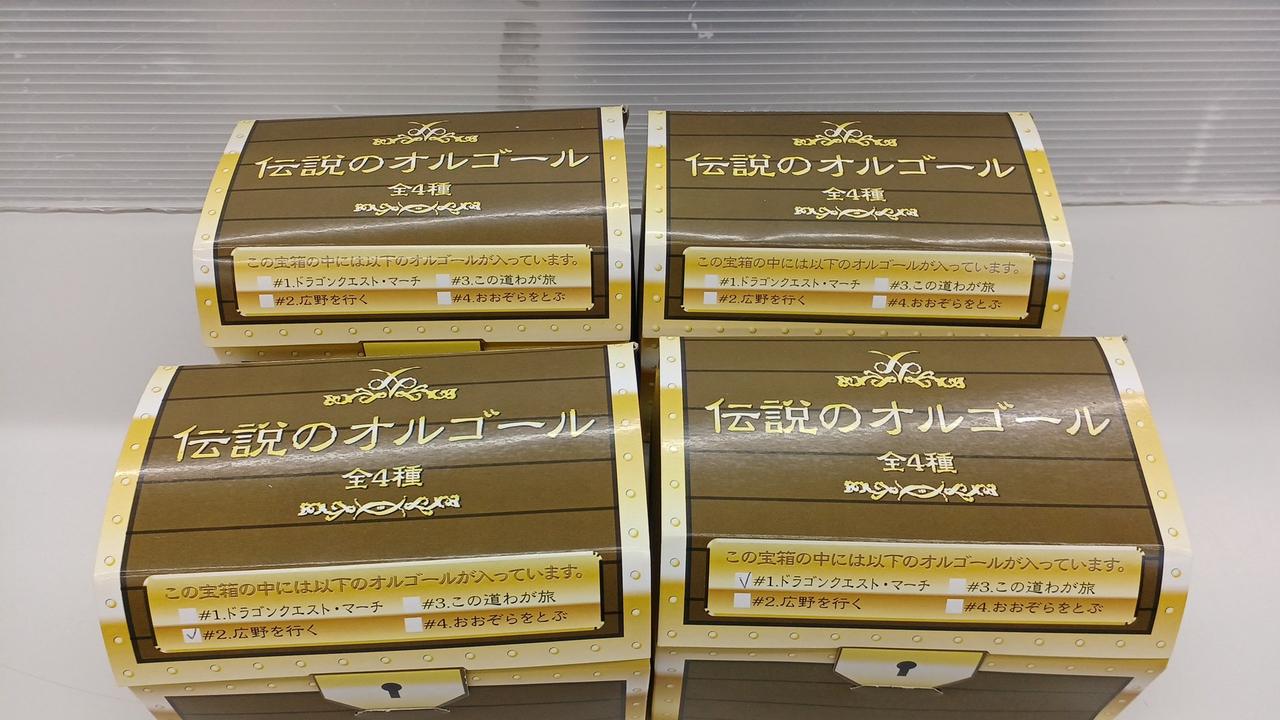 伝説のオルゴール
全4種
この宝箱の中には以下のオルゴールが入っています。
#1.ドラゴンクエスト・マーチ #3.この道わが旅
#2.広野を行く #4.おおぞらをとぶ
伝説のオルゴール
全4種
この宝箱の中には以下のオルゴールが入っています。
#1.ドラゴンクエスト・マーチ #3.この道わが旅
#2.広野を行く #4.おおぞらをとぶ
伝説のオルゴール
全4種
この宝箱の中には以下のオルゴールが入っています。
#1.ドラゴンクエスト・マーチ #3.この道わが旅
✓#2.広野を行く #4.おおぞらをとぶ
伝説のオルゴール
全4種
この宝箱の中には以下のオルゴールが入っています。
✓#1.ドラゴンクエスト・マーチ #3.この道わが旅
#2.広野を行く #4.おおぞらをとぶ